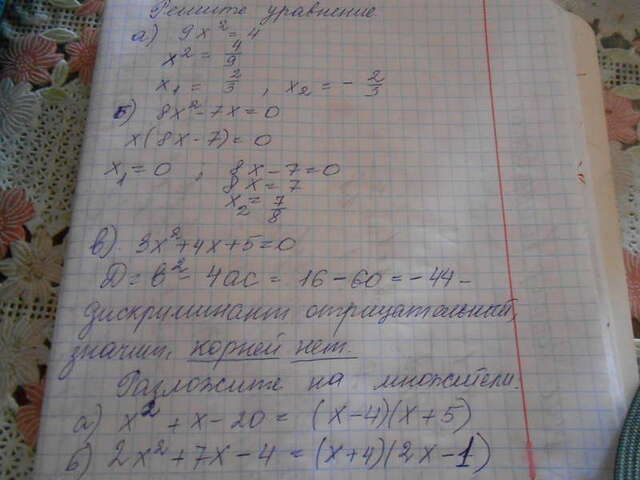 Решите уравнение
а) 9x² = 4
x² = 4/9
x₁ = 2/3 , x₂ = - 2/3
б) 8x² - 7x = 0
x(8x - 7) = 0
x₁ = 0 , 8x - 7 = 0
8x = 7
x₂ = 7/8
в). 3x² + 4x + 5 = 0
Д = в² - 4ac = 16 - 60 = - 44 -
дискриминант отрицательный,
значит, корней нет.
Разложите на множители.
а) x² + x - 20 = (x - 4)(x + 5)
б) 2x² + 7x - 4 = (x + 4)(2x - 1)